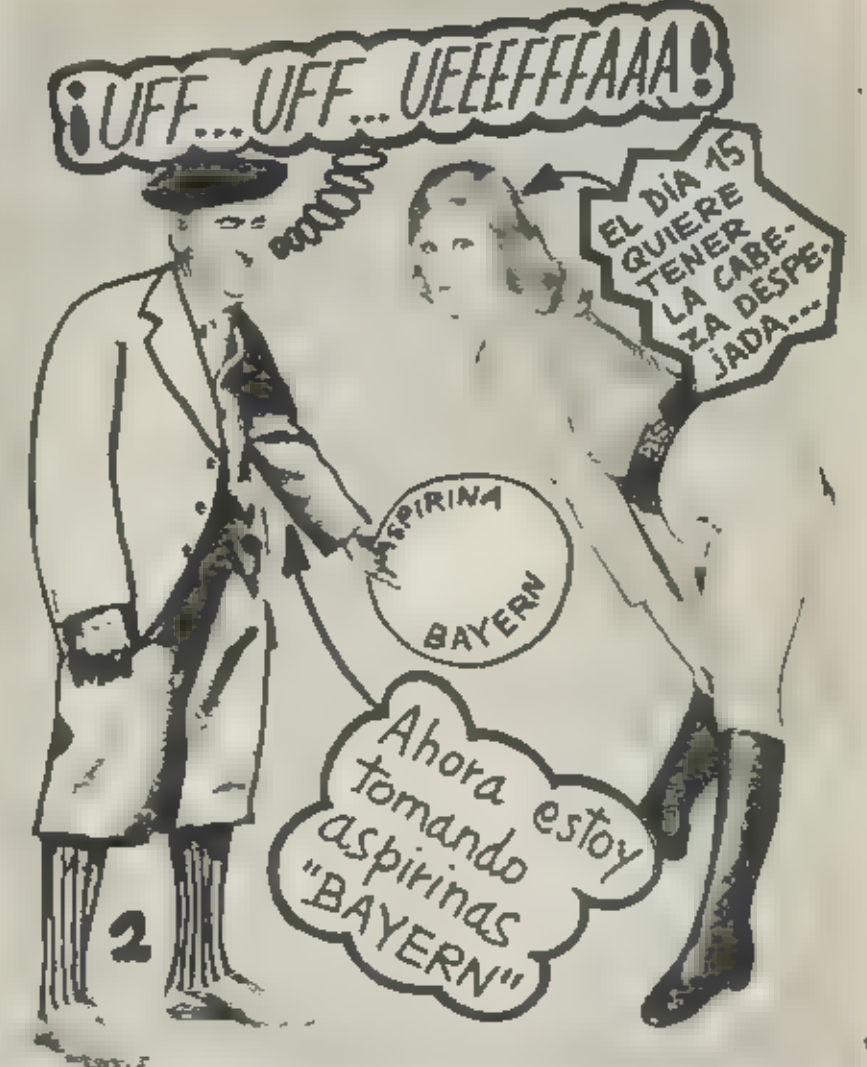 ¡UFF... UFF... UEEEFFFAAA!
EL DÍA 15
QUIERE
TENER
LA CABE-
ZA DESPE-
JADA...
ASPIRINA
BAYERN
Ahora estoy
tomando
aspirinas
"BAYERN"
2